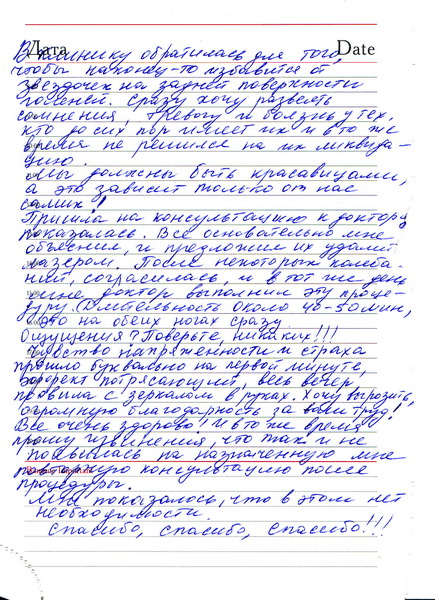 Дата Date
В клинику обратилась для того,
чтобы наконец-то избавится от
звездочек на задней поверхности
голеней. Сразу хочу развеять
сомнения, тревогу и боязнь у тех,
кто до сих пор имеет их и в то же
время не решился на их ликвида-
цию.
Мы должны быть красавицами,
а это зависит только от нас
самих!
Пришла на консультацию к доктору
показалась. Все основательно мне
объяснил, и предложил их удалить
лазером. После некоторых колеба-
ний, согласилась, и в тот же день
мне доктор выполнил эту проце-
дуру. Длительность около 40-50 мин,
это на обеих ногах сразу.
Ощущения? Поверьте, никаких!!!
Чувство напряженности и страха
прошло буквально на первой минуте,
эффект потрясающий, весь вечер
провела с зеркалом в руках. Хочу выразить,
огромную благодарность за ваш труд!
Все очень здорово! И в то же время
прошу извинения, что так и не
появилась на назначенную мне
повторную консультацию после
процедуры.
Мне показалось, что в этом нет
необходимости.
Спасибо, спасибо, спасибо!!!